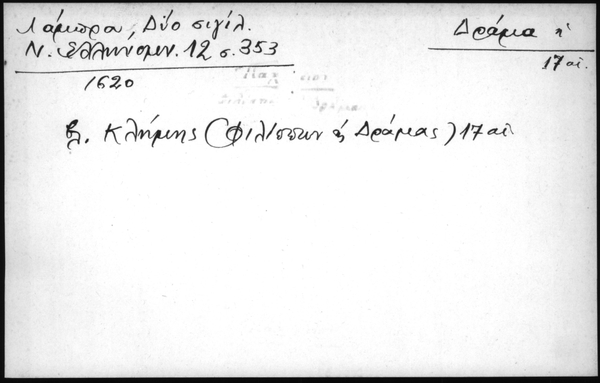 Λάμπρου, Δύο σιγίλ.
Ν. Ελληνομν. 12 σ. 353
1620
Δράμα ἡ
17 αἰ.
βλ. Κλήμης (Φιλίππων & Δράμας) 17 αἰ.